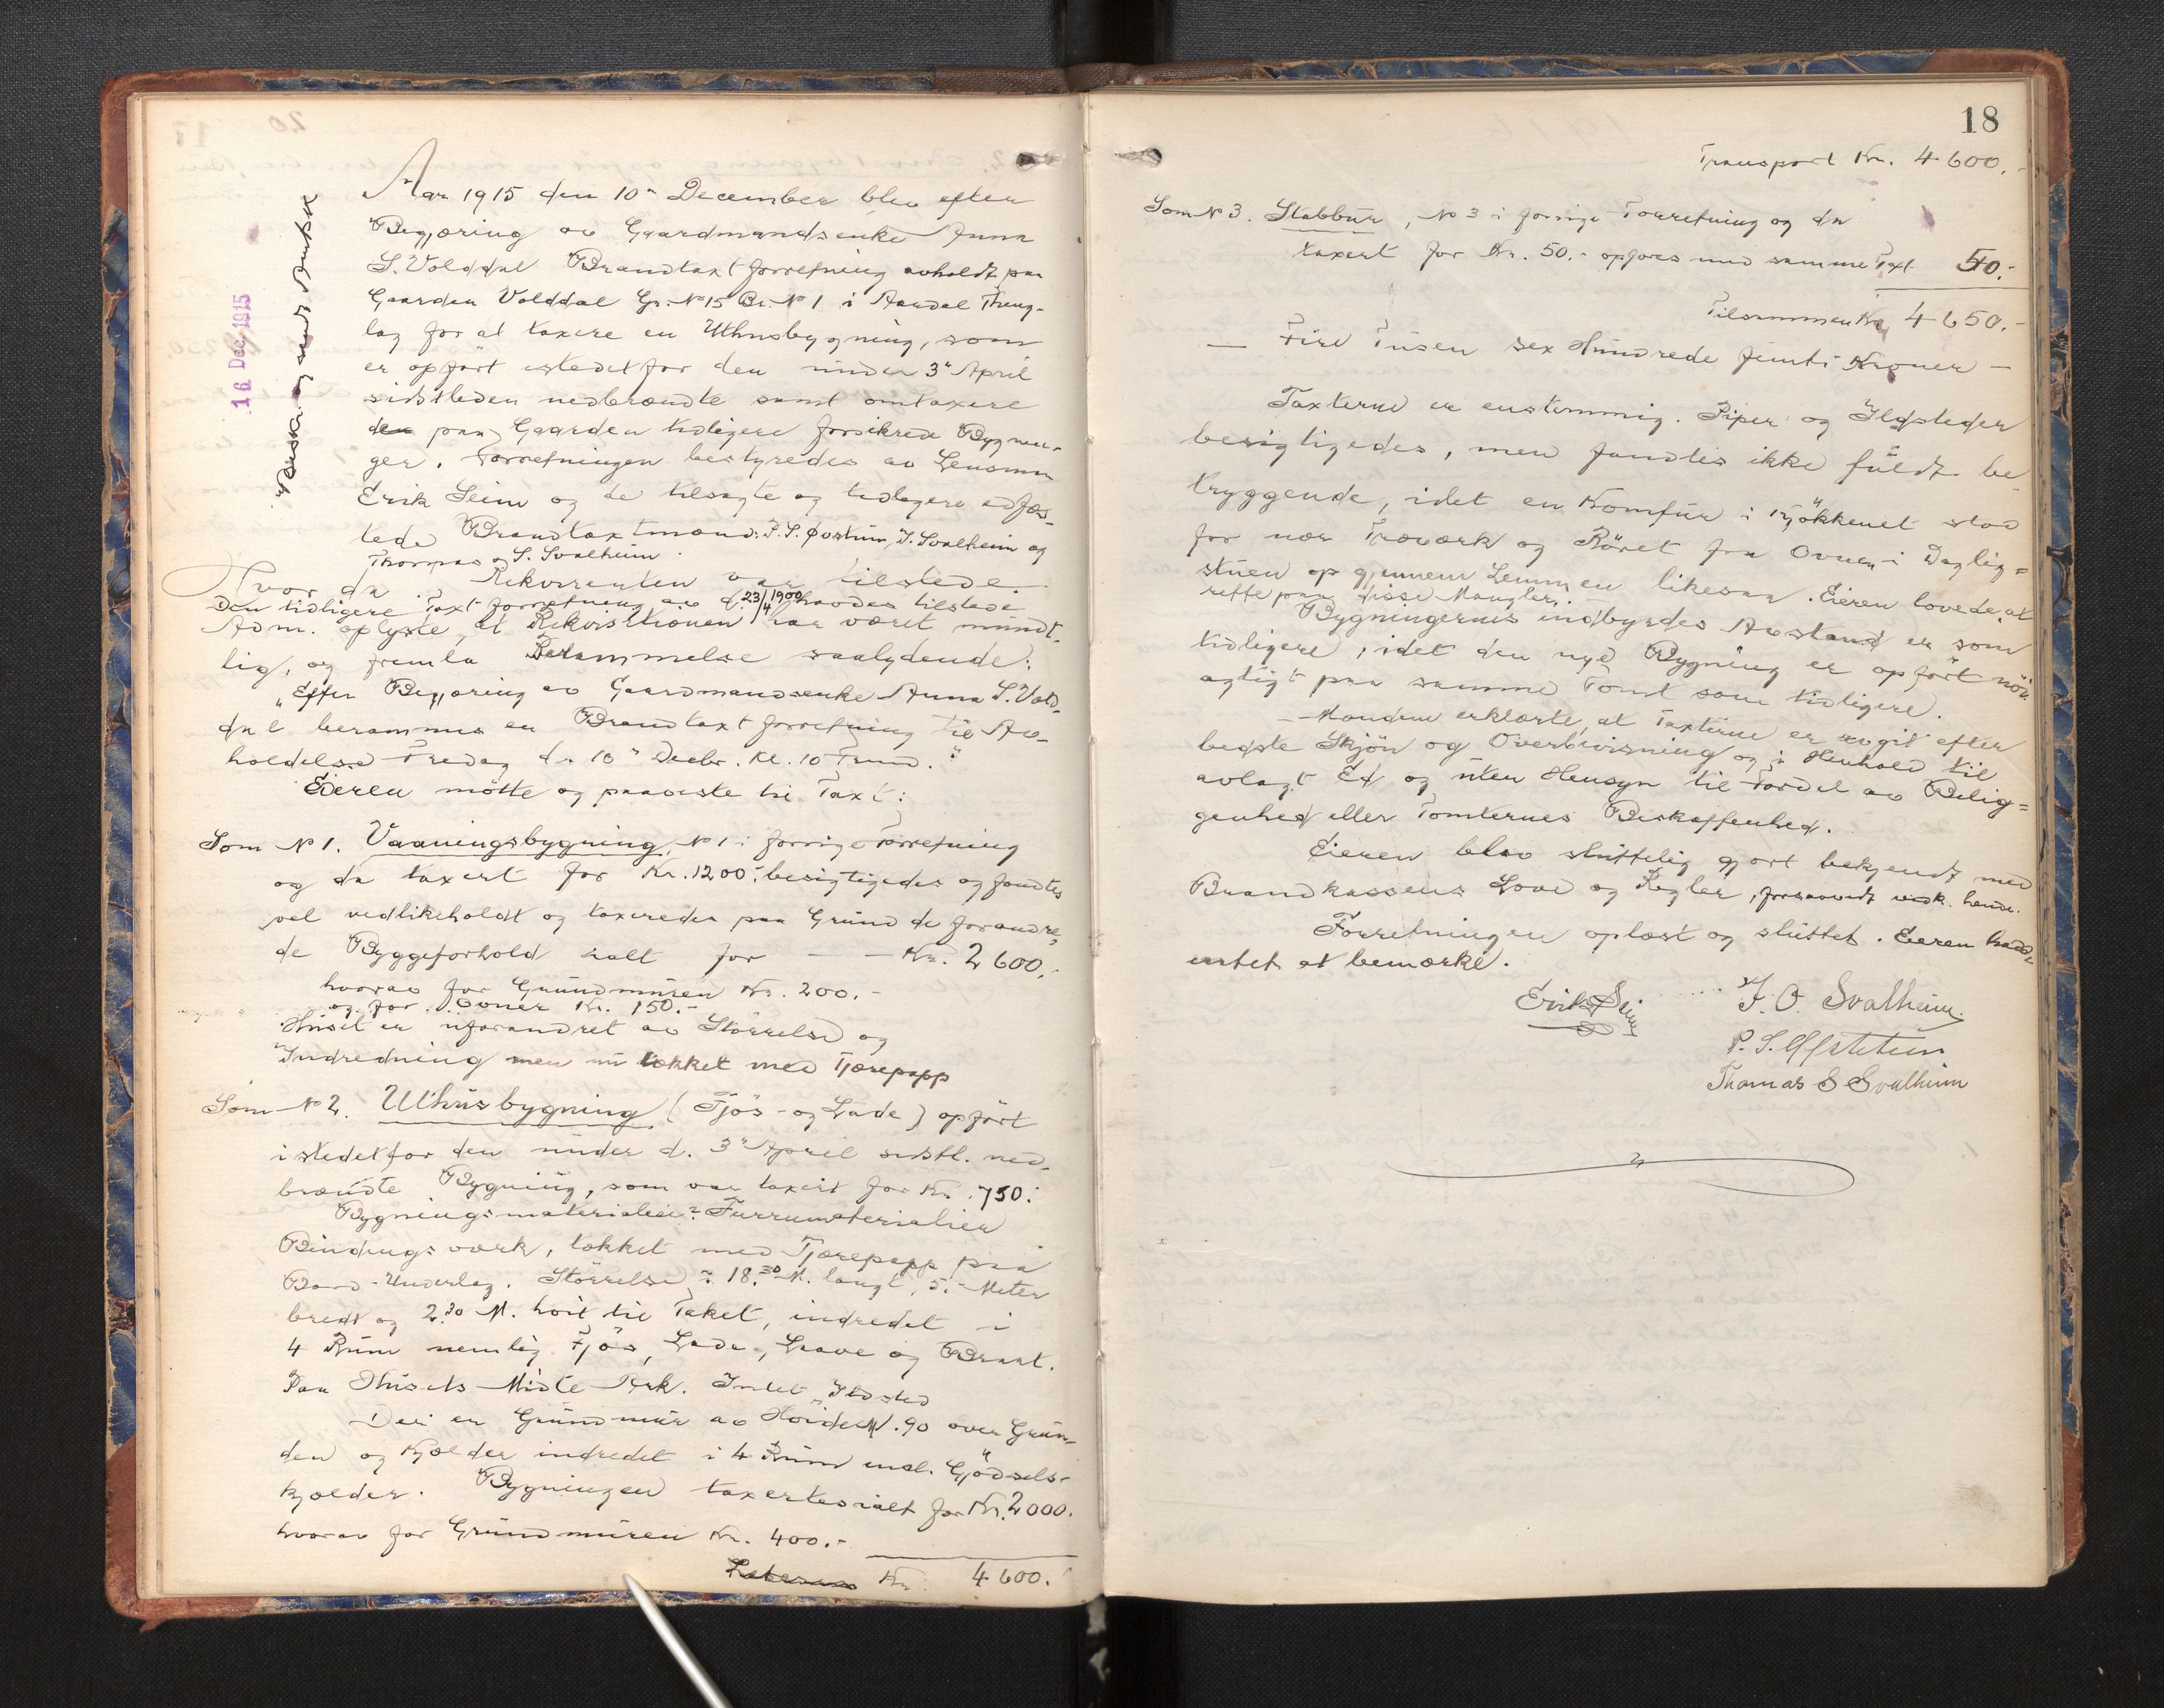 Aar 1915 den 10- December blev efter
Begjæring av Gaardmandsenke Anna
S. Volddal Brandtaxtforretning avholdt paa
Gaarden Volddal Gr. No 15 Br. No 1 i Aardal Thing-
lag for at taxere en Uthusbygning, som
er opført istedetfor den under 3" April
sidstleden nedbrændte samt omtaxere
den paa Gaarden tidligere forsikrede Bygnin-
ger. Forretningen bestyredes av Lensman
Erik Seim og de tilsagte og tidligere edfæs-
tede Brandtaxtmænd: P. S. J. Svalheim og
Thomas S. Svalheim.
Hvor da Rekvirenten var tilstede.
Den tidligere Taxtforretning av d. 23/4 1900 havdes tilstede
Adm. oplyste, at Rekvisitionen har været mundt-
lig, og fremla Berammelse saalydende:
"Efter Begjæring av Gaardmandsenke Anna S. Vold-
dal berammes en Brandtaxtforretning til Av-
holdelse Fredag d. 10" Decbr. Kl. 10 Form."
Eieren møtte og paaviste til Taxt:
Som No 1. Vaaningsbygning, No 1 i forrige Forretning
og da taxert for Kr. 1200.- besigtigedes og fandtes
vel vedlikeholdt og taxeredes paa Grund de forandre-
de Byggeforhold ialt for - - Kr. 2600.-
hvorav for Grundmuren Kr. 200.-
og for Ovner Kr. 150.-
Huset er uforandret av Størrelse og
Indredning men nu tækket med Tjærepapp
Som No 2. Uthusbygning (Fjös- og Lade) opført
istedetfor den under d. 3" April sidstl. ned-
brændte Bygning, som var taxert for Kr. 750.-
Bygningsmaterialier: Furrumaterialier
Bindingsværk, tækket med Tjærepapp paa
Bord-Underlag. Störrelse: 18.30 M. langt, 5.- Meter
bredt og 2.30 M. høit til Taket, indredet i
4 Rum nemlig Fjös, Lade, Laave og
Paa Husets Midte Ark. Intet Ildsted
Der er Grundmur av Höide M .90 over Grun-
den og Kjælder indredet i 4 Rum incl. Gjødsels-
kjælder. Bygningen taxertes ialt for Kr. 2000.
hvorav for Grundmuren Kr. 400.-
Kr. 4600.-
16 Dec. 1915
18
Transport Kr. 4600.-
Som No 3. Stabbur, No 3 i forrige Forretning og da
taxert for Kr. 50.- opføres med samme Taxt 50.-
Tilsammen Kr. 4650.-
- Fire Tusen sex Hundrede femti Kroner -
Taxterne er enstemmig. Piper og Ildsteder
besigtigedes, men fandtes ikke fuldt be-
tryggende, idet en Komfur i Kjökkenet stod
for nær Træværk og Röret fra Ovnen i Daglig-
stuen op gjennem Lemmen likesaa. Eieren lovede at
rette paa disse Mangler.
Bygningernes indbyrdes Avstand er som
tidligere, idet den nye Bygning er opført nöi-
agtigt paa samme Tomt som tidligere.
- Mændene erklærte, at Taxterne er avgit efter
bedste Skjön og Overbevisning og i Henhold til
avlagt Ed og uten Hensyn til Fordel av Belig-
genhed eller Tomternes Beskaffenhed.
Eieren blev sluttelig gjort bekjendt med
Brandkassens Love og Regler, forsaavidt vedk. hende.
Forretningen oplæst og sluttet. Eieren hadde
intet at bemærke.
Erik Seim
J. O. Svalheim.
P. S.
Thomas S Svalheim